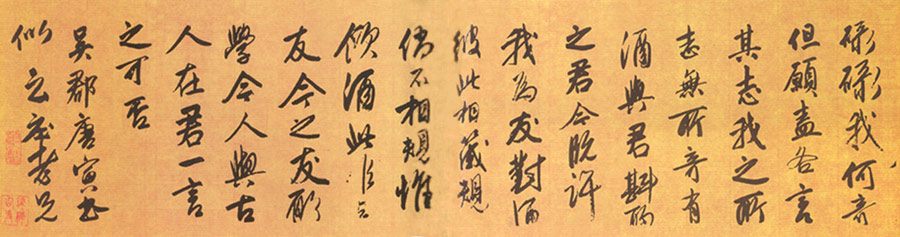 碌碌我何奇
但願盍各言
其志我之所
志無所奇有
酒與君斟酌
之君今既許
我為友對酒
彼此相箴規
倘不相規惟
飲酒此
友今之友
學今人與古
人在君一言
之可否
吳郡唐寅書
似云庵老兄